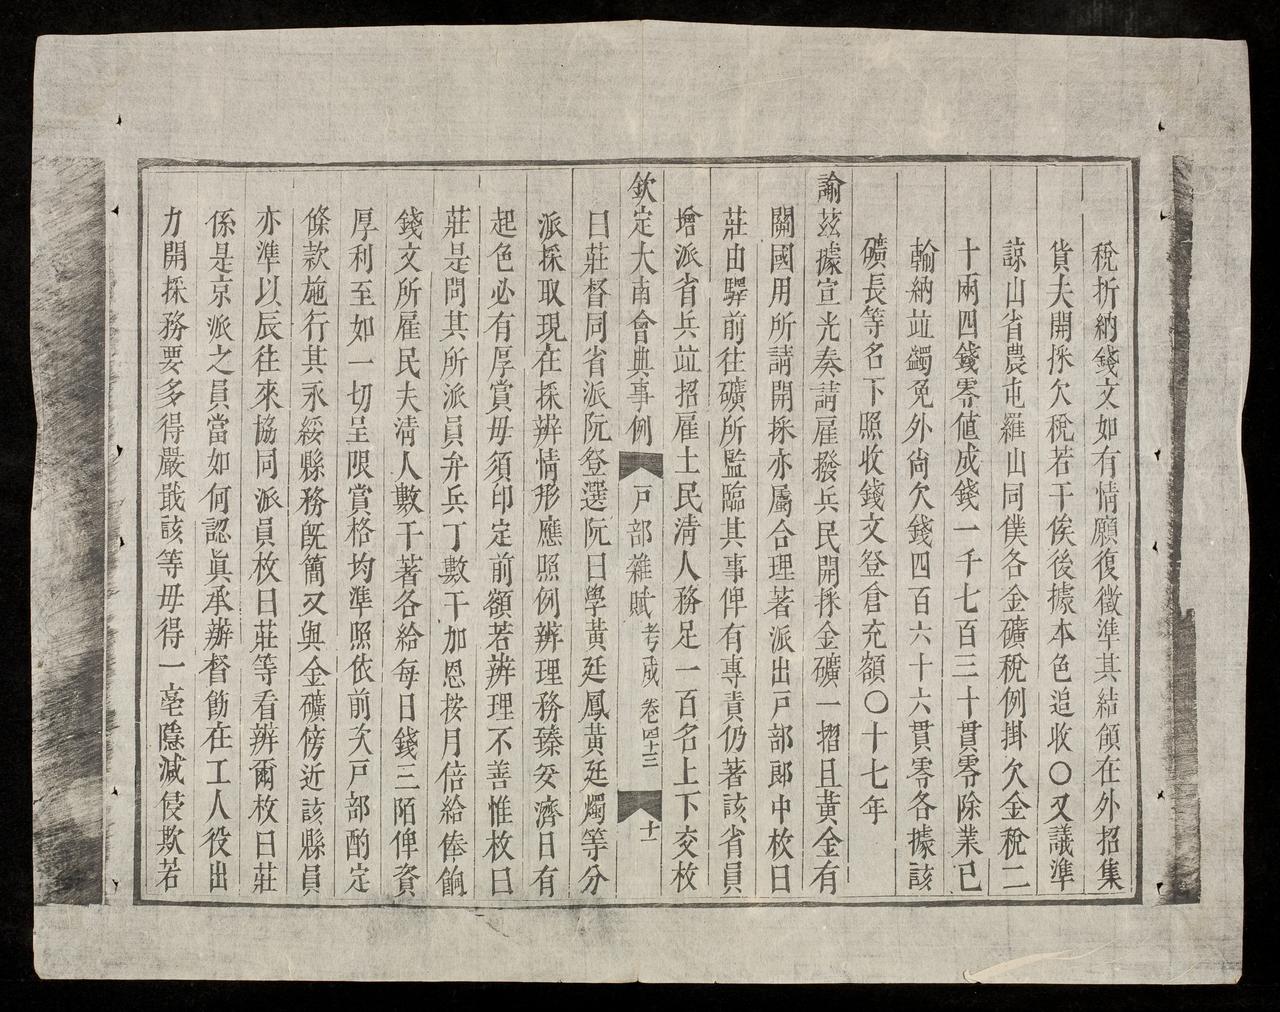 稅折納錢文如有情願復徵準其結領在外招集
貨夫開採欠稅若干俟後據本色追收〇又議準
諒山省農屯羅山同僕各金礦稅例掛欠金稅二
十兩四錢零值成錢一千七百三十貫零除業已
輸納竝蠲免外尙欠錢四百六十六貫零各據該
礦長等名下照收錢文登倉充額〇十七年
諭茲據宣光奏請雇撥兵民開採金礦一摺且黃金有
關國用所請開採亦屬合理著派出戸部郎中枚曰
莊由驛前往礦所監臨其事俾有專責仍著該省員
增派省兵竝招雇土民淸人務足一百名上下交枚
欽定大南會典事例 戸部雜賦 考成 卷四十三 十一
曰莊督同省派阮登選阮曰學黃廷鳳黃廷燭等分
派採取現在採辨情形應照例辨理務臻妥濟日有
起色必有厚賞毋須印定前額若辨理不善惟枚曰
莊是問其所派員弁兵丁數干加恩按月倍給俸餉
錢文所雇民夫淸人數干著各給每日錢三陌俾資
厚利至如一切呈限賞格均準照依前次戸部酌定
條款施行其永綏縣務旣簡又與金礦傍近該縣員
亦準以辰往來協同派員枚曰莊等看辨爾枚曰莊
係是京派之員當如何認眞承辦督飭在工人役出
力開採務要多得嚴戢該等毋得一毫隱減侵欺若